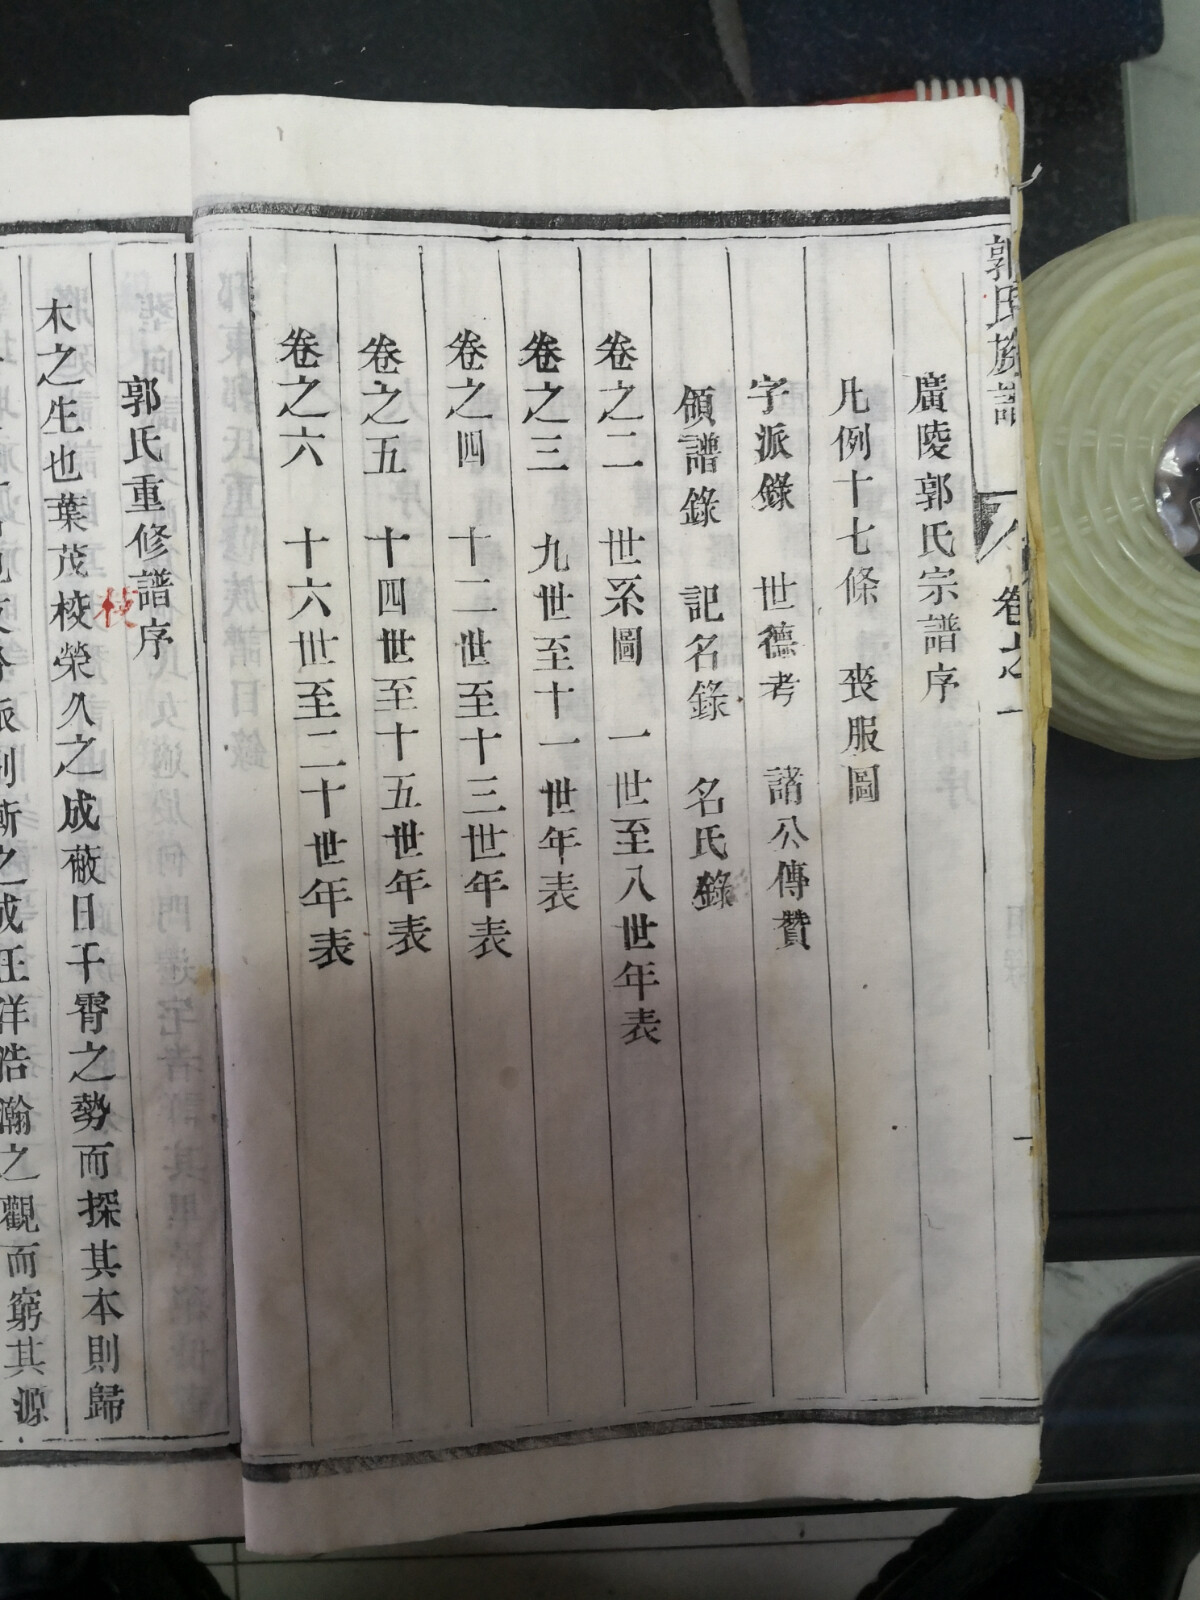 郭氏族譜 卷之一 一
廣陵郭氏宗譜序
凡例十七條 喪服圖
字派錄 世德考 諸公傳贊
領譜錄 記名錄 名氏錄
卷之二 世系圖 一世至八世年表
卷之三 九世至十一世年表
卷之四 十二世至十三世年表
卷之五 十四世至十五世年表
卷之六 十六世至二十世年表
郭氏重修譜序
枝
木之生也葉茂校榮久之成蔽日干霄之勢而探其本則歸
派別漸之成汪洋浩瀚之觀而窮其源